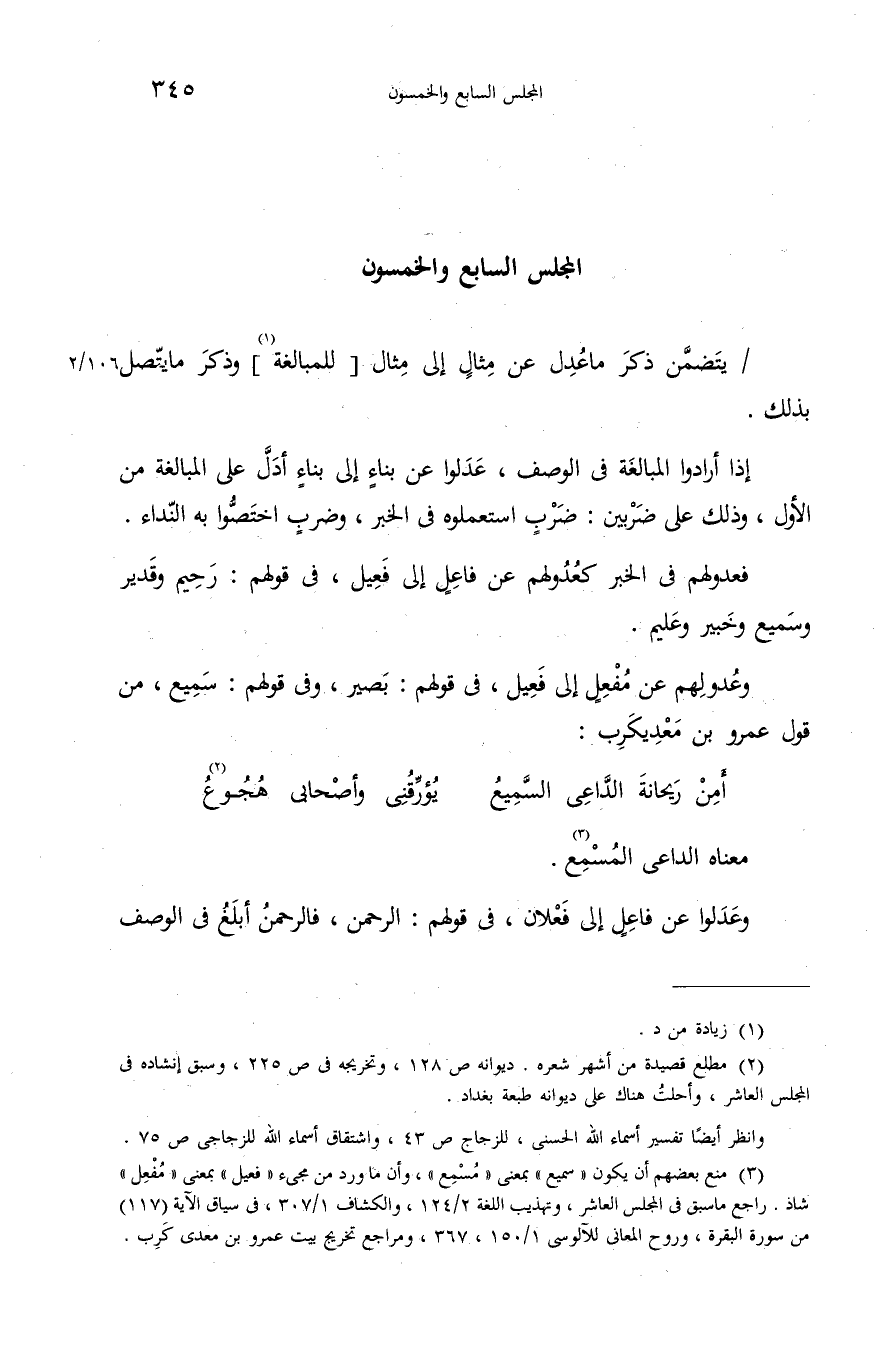 المجلس السابع والخمسون ٣٤٥
المجلس السابع والخمسون
/ يتَضمَّن ذكرَ ماعُدِل عن مِثالٍ إلى مِثال [ للمبالغة (١) ] وذكرَ مايتّصل ٢/١٠٦
بذلك .
إذا أرادوا المبالغَة فى الوصف ، عَدَلوا عن بناءٍ إلى بناءٍ أدَلَّ على المبالغة من
الأول ، وذلك على ضَرْبين : ضَرْبٍ استعملوه فى الخبر ، وضربٍ اختَصُّوا به النّداء .
فعدولهم فى الخبر كعُدُولهم عن فاعِلٍ إلى فَعِيل ، فى قولهم : رَحِيم وقَدير
وسَميع وخَبير وعَليم .
وعُدولِهم عن مُفْعِلٍ إلى فَعِيل ، فى قولهم : بَصير ، وفى قولهم : سَمِيع ، من
قول عمرو بن مَعْدِيكَرِب :
أَمِنْ رَيحانةَ الدَّاعِى السَّمِيعُ يُؤرِّقُنِى وأصْحابى هُجُـوعُ (٢)
معناه الداعى المُسْمِع (٣) .
وعَدَلوا عن فاعِلٍ إلى فَعْلان ، فى قولهم : الرحمن ، فالرحمنُ أبلَغُ فى الوصف
(١) زيادة من د .
(٢) مطلع قصيدة من أشهر شعره . ديوانه ص ١٢٨ ، وتخريجه فى ص ٢٢٥ ، وسبق إنشاده فى
المجلس العاشر ، وأحلتُ هناك على ديوانه طبعة بغداد .
وانظر أيضًا تفسير أسماء الله الحسنى ، للزجاج ص ٤٣ ، واشتقاق أسماء الله للزجاجى ص ٧٥ .
(٣) منع بعضهم أن يكون « سميع » بمعنى « مُسْمِع » ، وأن ما ورد من مجىء « فعيل » بمعنى « مُفْعِل »
شاذ . راجع ماسبق فى المجلس العاشر ، وتهذيب اللغة ١٢٤/٢ ، والكشاف ٣٠٧/١ ، فى سياق الآية (١١٧)
من سورة البقرة ، وروح المعانى للآلوسى ١٥٠/١ ، ٣٦٧ ، ومراجع تخريج بيت عمرو بن معدى كَرِب .